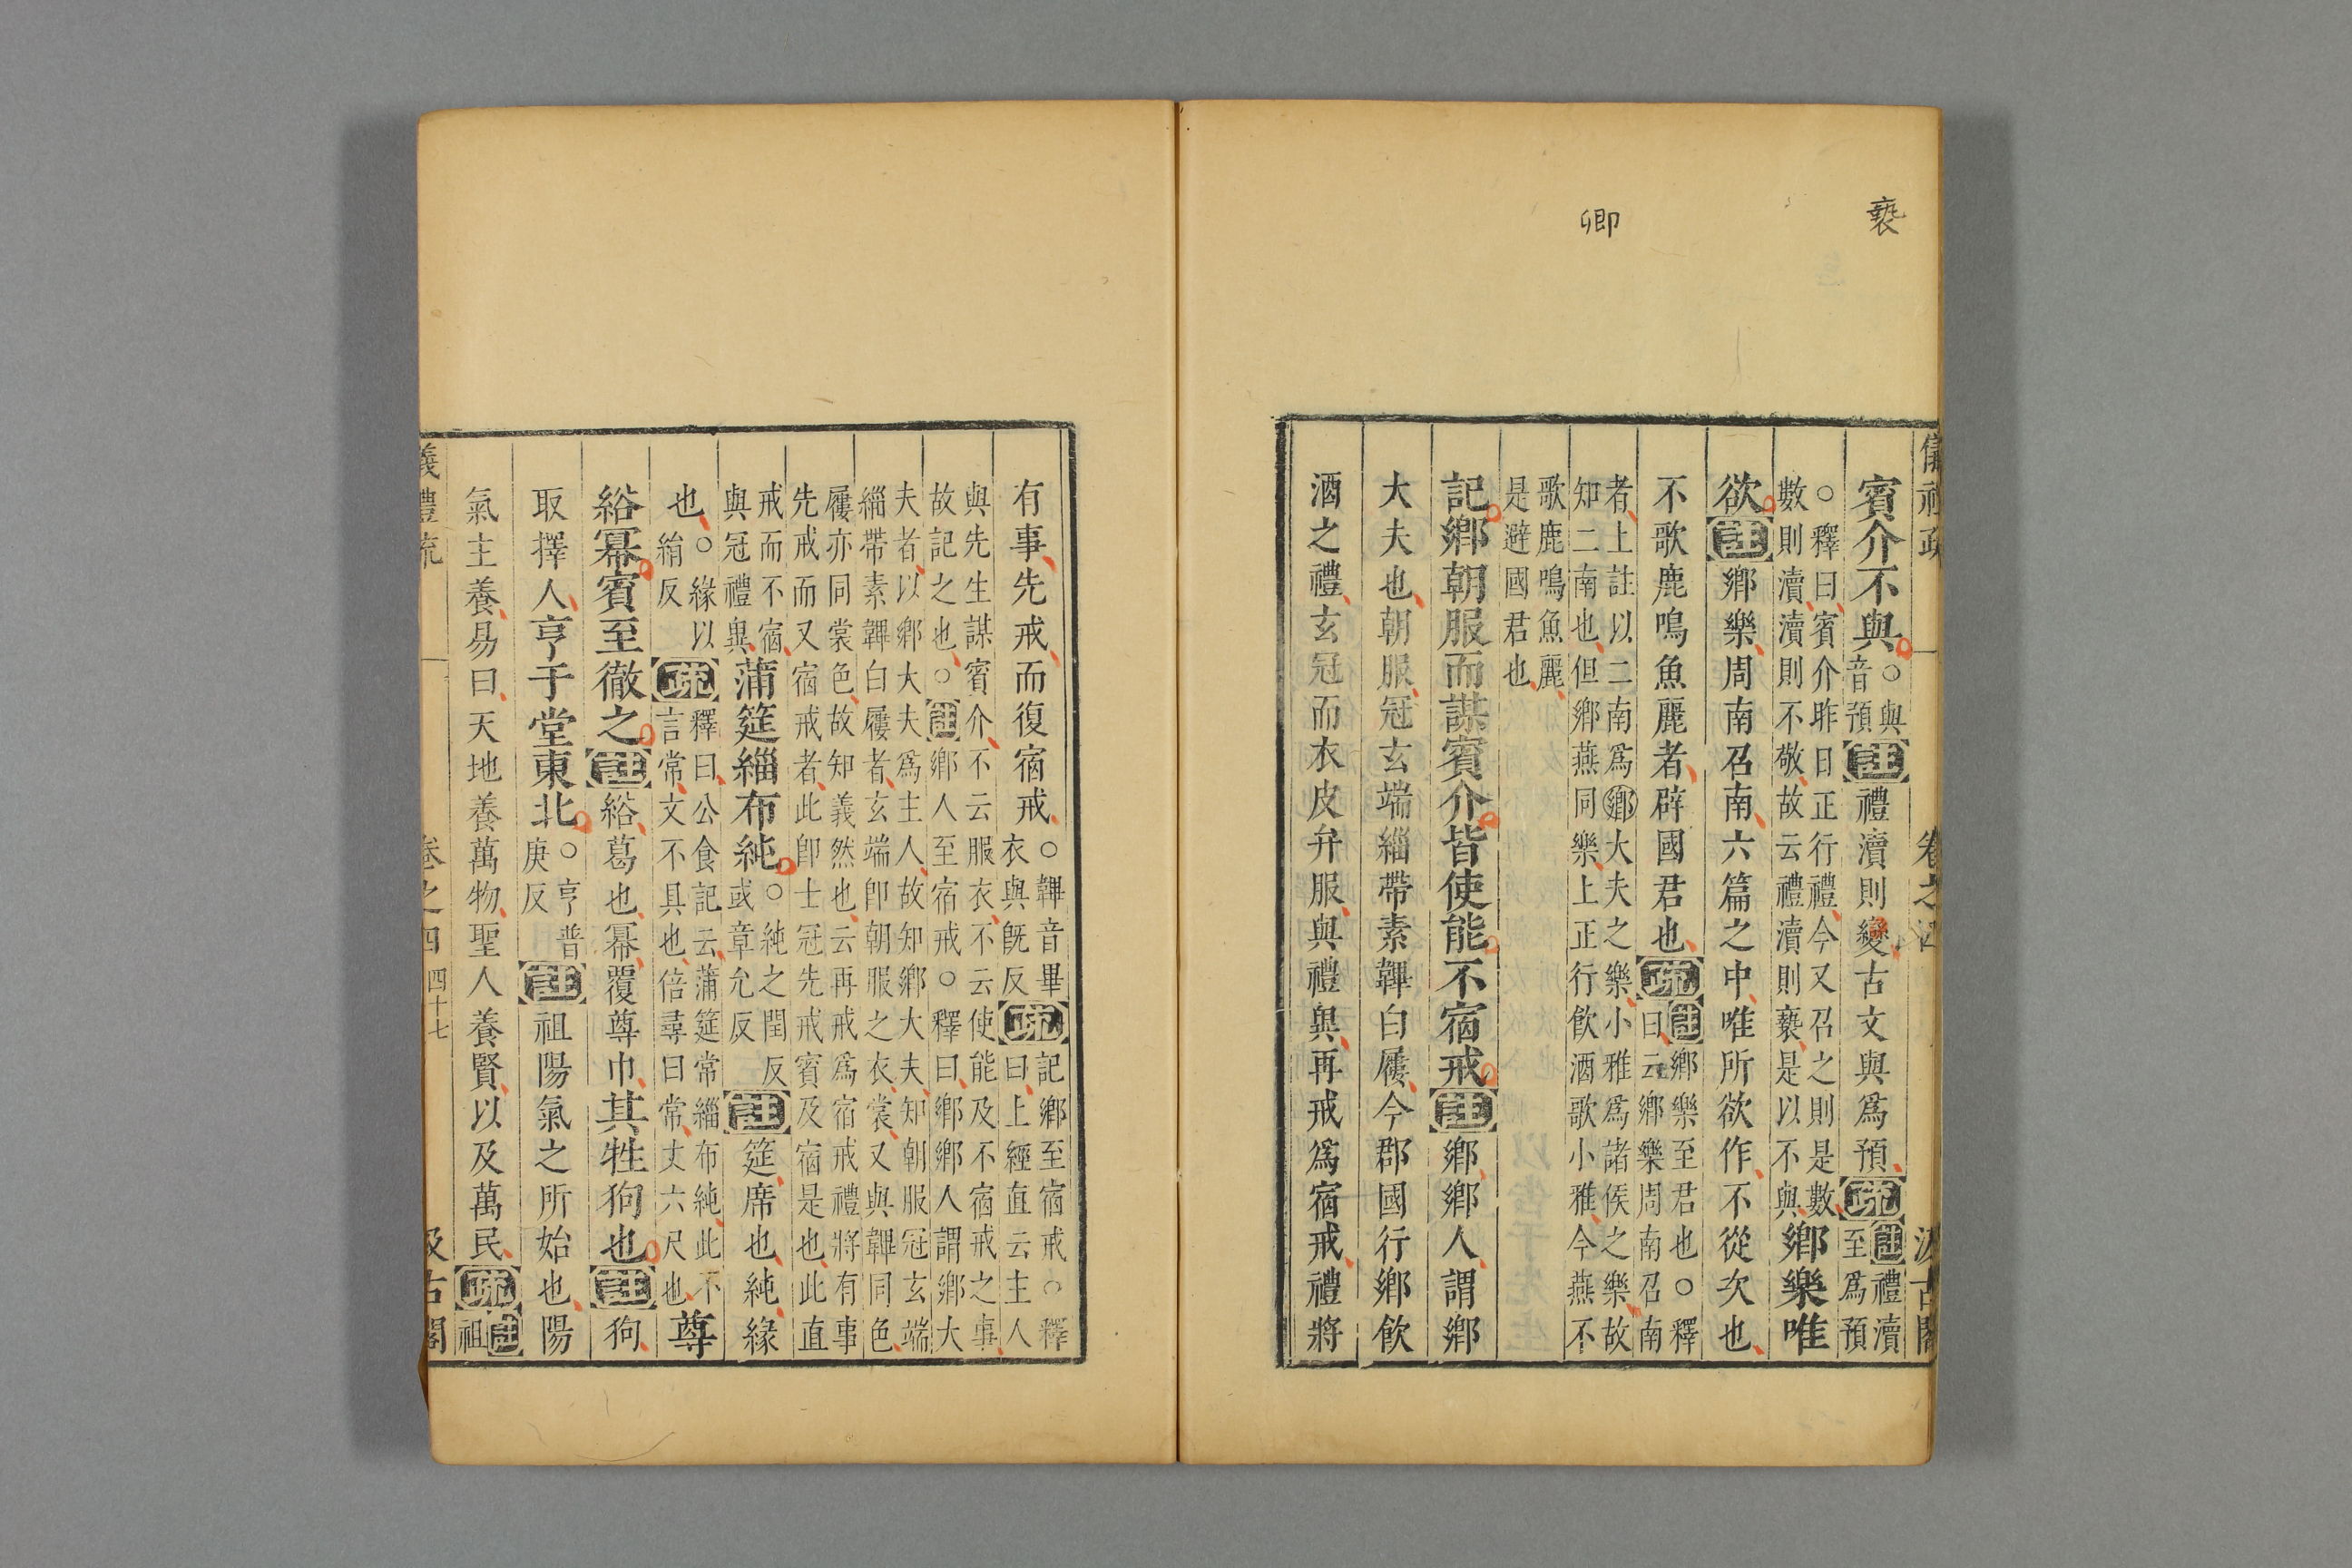 褻
卿
儀禮疏 卷之四 汲古閣
賓介不與○與音預註禮瀆則變古文與爲預疏註禮瀆至爲預
○釋曰賓介昨日正行禮今又召之則是數
數則瀆瀆則不敬故云禮瀆則褻是以不與鄉樂唯
欲註鄉樂周南召南六篇之中唯所欲作不從次也
不歌鹿鳴魚麗者辟國君也疏註鄉樂至君也○釋曰云鄉樂周南召南
者上註以二南爲鄉大夫之樂小雅爲諸侯之樂故
知二南也但鄉燕同樂上正行飲酒歌小雅今燕不
歌鹿鳴魚麗
是避國君也
記鄉朝服而謀賓介皆使能不宿戒註鄉鄉人謂鄉
大夫也朝服冠玄端緇帶素韠白屨今郡國行鄉飲
酒之禮玄冠而衣皮弁服與禮異再戒爲宿戒禮將
有事先戒而復宿戒○韠音畢衣與旣反疏記鄉至宿戒○釋曰上經直云主人
與先生謀賓介不云服衣不云使能及不宿戒之事
故記之也○註鄉人至宿戒○釋曰鄉鄉人謂鄉大
夫者以鄉大夫爲主人故知鄉大夫知朝服冠玄端
緇帶素韠白屨者玄端卽朝服之衣裳又與韠同色
屨亦同裳色故知義然也云再戒爲宿戒禮將有事
先戒而又宿戒者此卽士冠先戒賓及宿是也此直
戒而不宿
與冠禮異蒲筵緇布純○純之閏反或章允反註筵席也純緣
也○緣以絹反疏釋曰公食記云蒲筵常緇布純此不
言常文不具也倍尋曰常丈六尺也尊
綌冪賓至徹之註綌葛也冪覆尊巾其牲狗也註狗
取擇人亨于堂東北○亨普庚反註祖陽氣之所始也陽
氣主養易曰天地養萬物聖人養賢以及萬民疏註祖
儀禮疏 卷之四 四十七 汲古閣